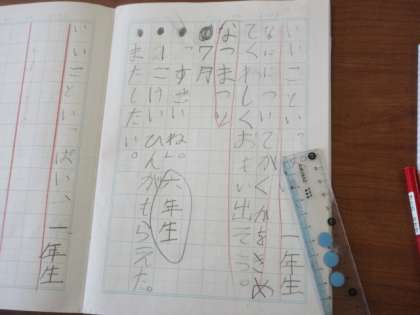 いいこといっぱい、一年生
なにについてかくかをきめ
てくわしくおもい出そう。
なつまつり
●7月
●
●一こけいひんがもらえた。
またしたい。
六年生
いいこといっぱい、一年生